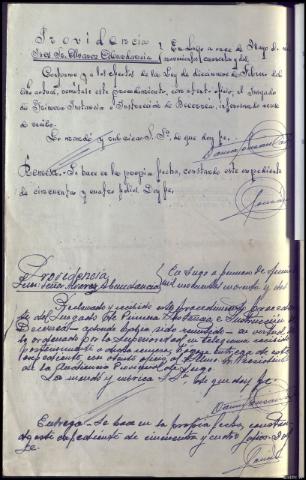 Providencia
Juez Sr. Alvarez Abundancia
En Lugo a once de Mayo de mil
novecientos cuarenta y dos.
Conforme y a los efectos de la Ley de diecinueve de Febrero del
año actual, remítase este procedimiento, con atento oficio, al Juzgado
de Primera Instancia e Instrucción de Becerreá, interesando acuse
de recibo.
Lo mandó y rubrica S. Sª. de que doy fe.
Remesa.- Se hace en la propia fecha, constando este expediente
de cincuenta y cuatro folios. Doy fe.
Providencia
Juez Señor Alvarez Abundancia
En Lugo a primero de
mil novecientos cuarenta y dos
Reclamado y recibido este procedimiento proceden-
te del Juzgado de Primera Instancia e Instrucción de
Becerreá - adonde había sido remitido - en virtud de
lo ordenado por la Superioridad en telegrama recibido
posteriormente a dicha remesa, hágase entrega de este
expediente, con atento oficio, al Iltmo. Sr. Presidente
de la Audiencia Provincial de Lugo.
Lo mandó y rubrica S.Sª. de que doy fe.
Entrega.- Se hace en la propia fecha, constan-
do este expediente de cincuenta y cuatro folios. Doy
fe.